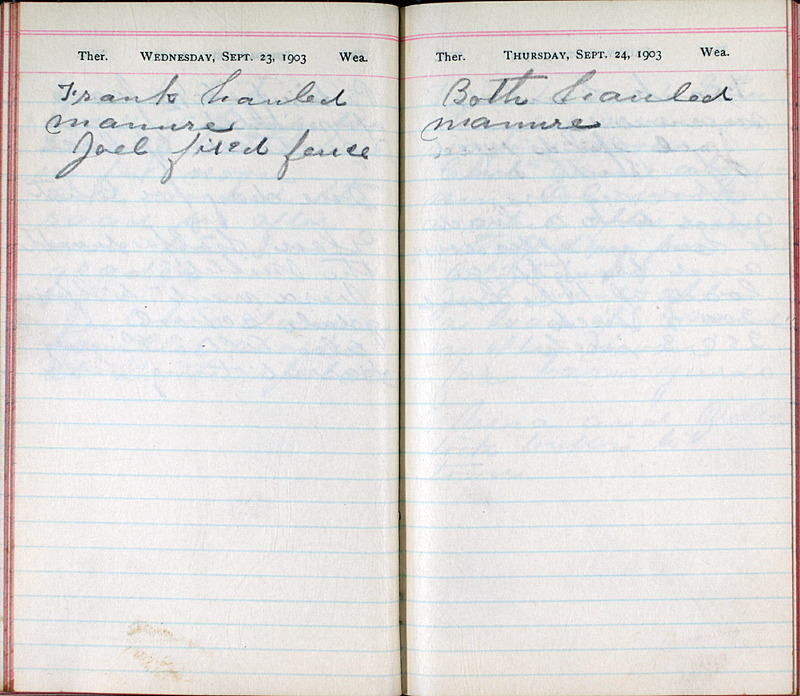 Ther. WEDNESDAY, SEPT. 23, 1903 Wea.
Frank hauled
manure
Joel fixed fence
Ther. THURSDAY, SEPT. 24, 1903 Wea.
Both hauled
manure